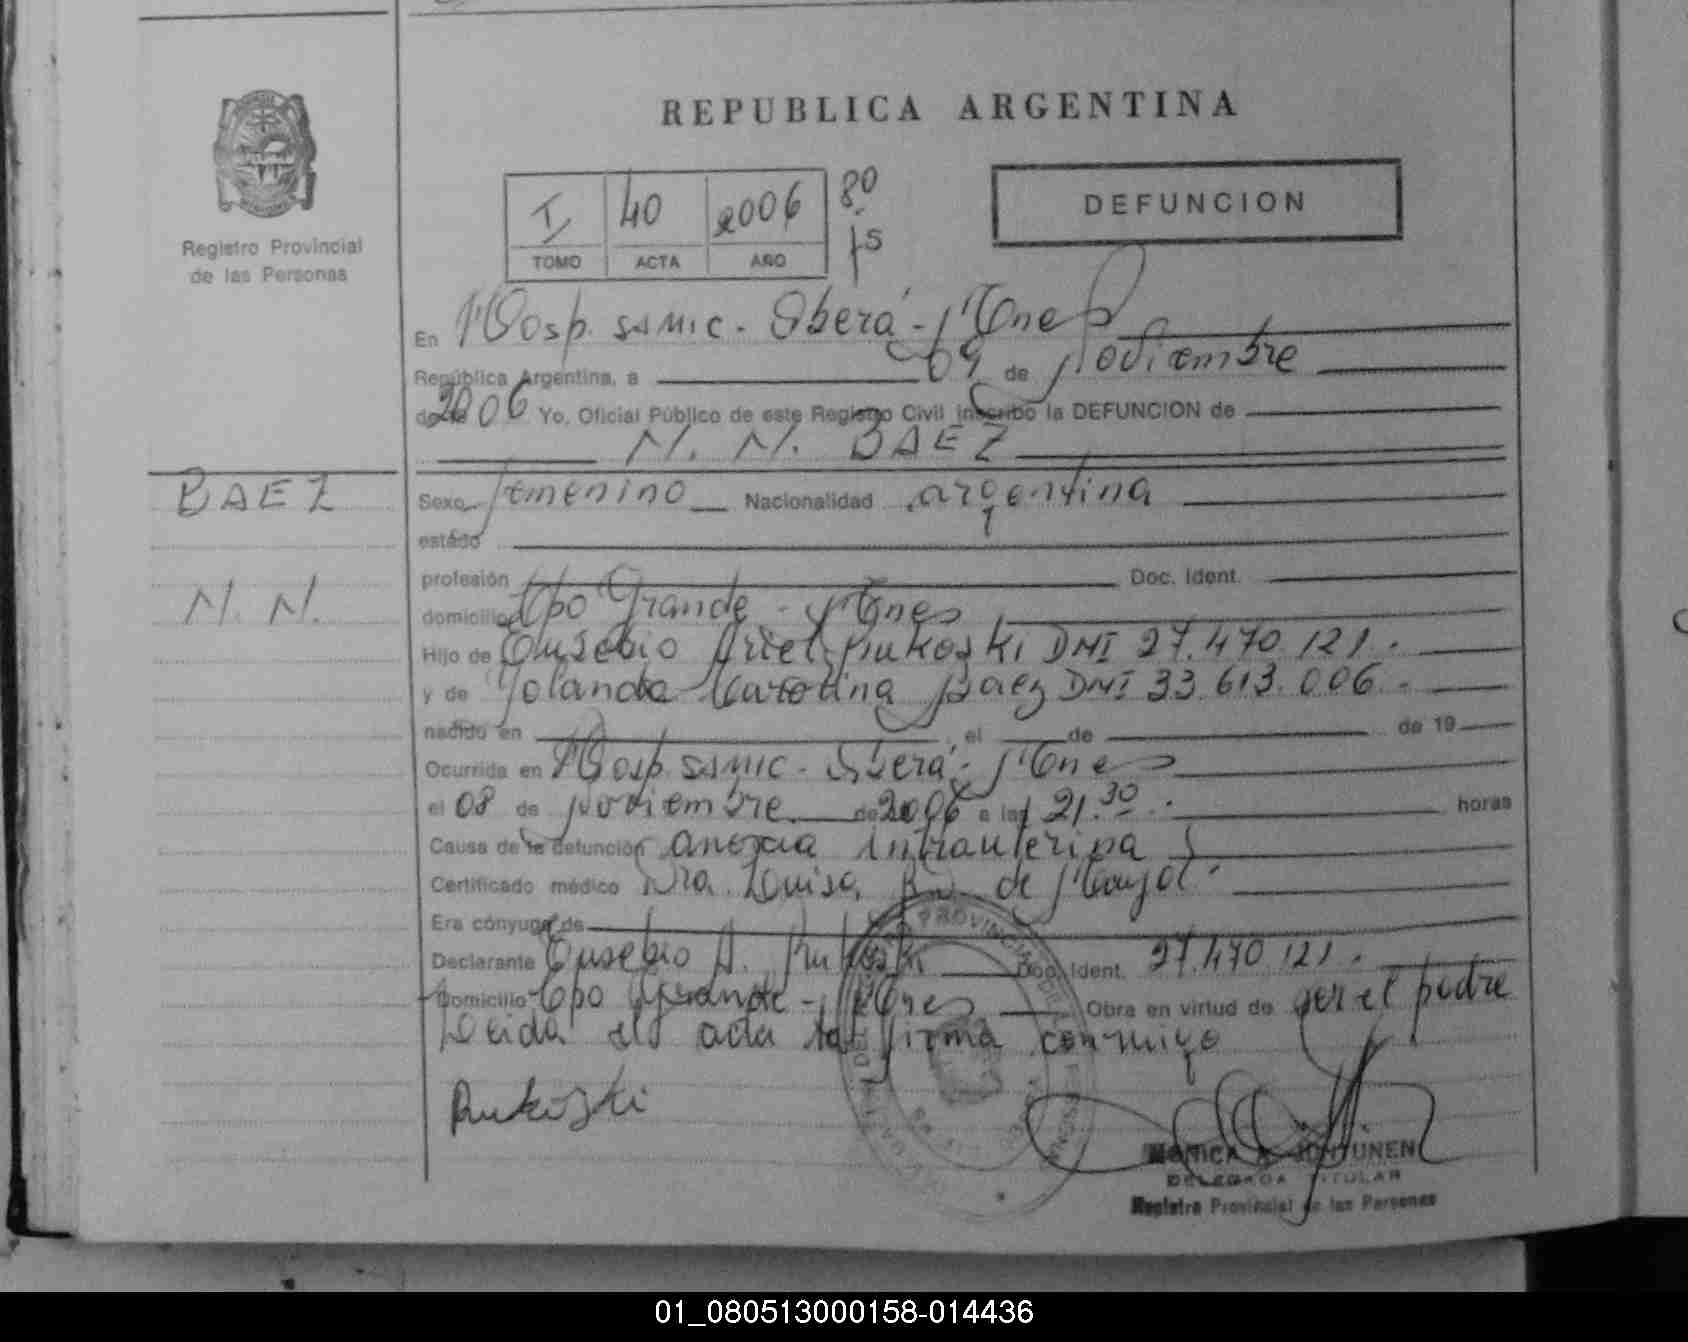 REPUBLICA ARGENTINA
Registro Provincial
de las Personas
I 40 2006
TOMO ACTA AÑO
80
15
DEFUNCION
En Hosp. SAMIC - Oberá - Mnes
República Argentina, a 09 de Noviembre
de 2006 Yo, Oficial Público de este Registro Civil inscribo la DEFUNCION de
N. N. BAEZ
BAEZ
N. N.
Sexo femenino Nacionalidad argentina
estado
profesión Doc. Ident.
domicilio Cpo Grande - Mnes
Hijo de Eusebio Ariel Rukoski DNI 27.470.121.
y de Yolanda Carolina Baez DNI 33.613.006.
nacido en , el de de 19
Ocurrida en Hosp. SAMIC - Oberá - Mnes
el 08 de noviembre de 2006 a las 21.30 horas
Causa de la defunción anoxia intrauterina
Certificado médico Dra. Luisa de
Era cónyuge de
Declarante Eusebio A. Rukoski Doc. Ident. 27.470.121.
Domicilio Cpo Grande - Mnes Obra en virtud de ser el padre
Leida el acta la firma conmigo
Rukoski
MONICA JUNTUNEN
DELEGADA TITULAR
Registro Provincial de las Personas
01_080513000158-014436